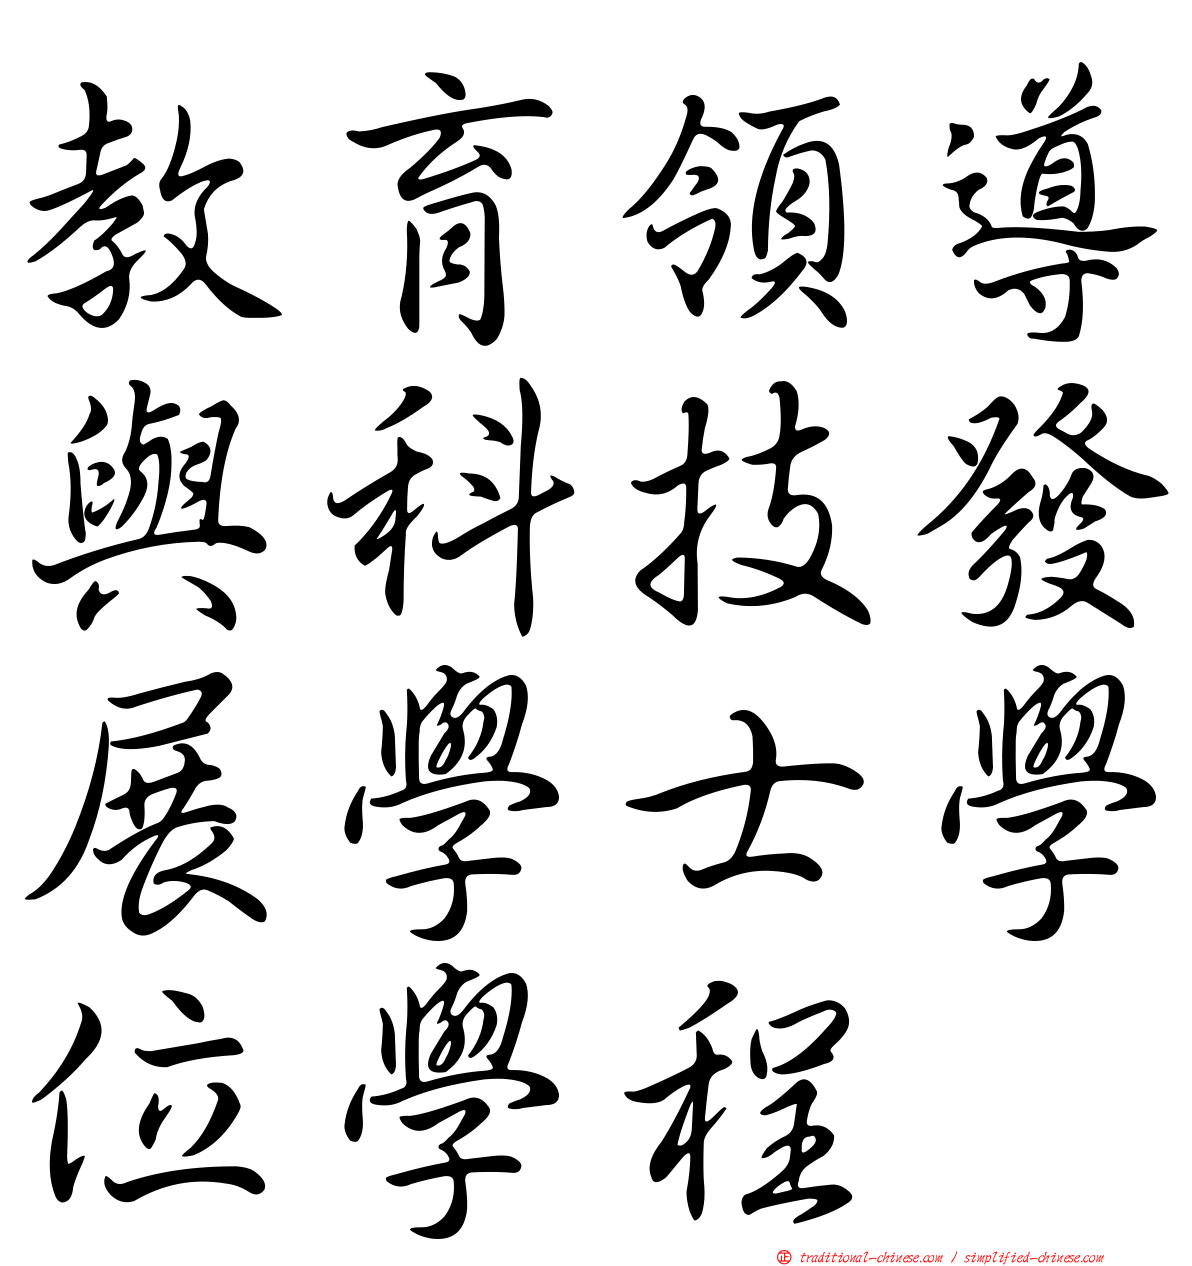 教育領導
與科技發
展學士學
位學程
正 traditional-chinese.com / simplified-chinese.com